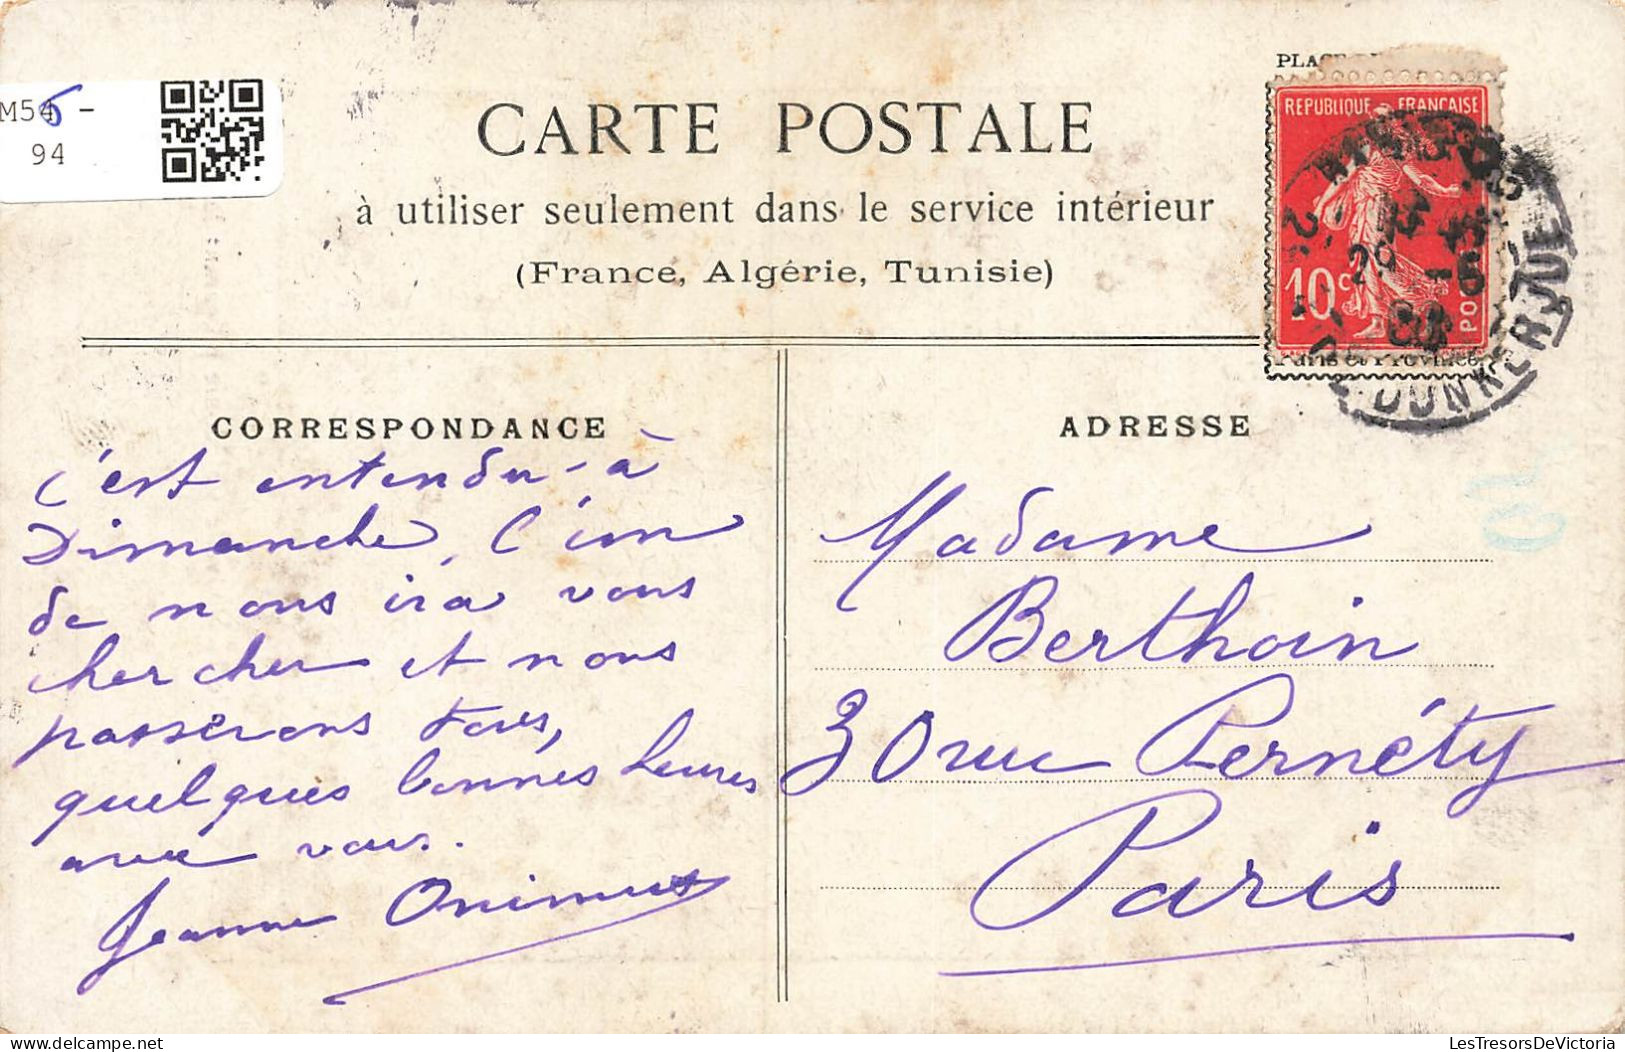 M546 -
94
CARTE POSTALE
à utiliser seulement dans le service intérieur
(France, Algérie, Tunisie)
REPUBLIQUE FRANCAISE
10 c
POSTES
Paris et Province
DUNKERQUE
CORRESPONDANCE
C'est entendu - à
Dimanche, l'un
de nous ira vous
chercher et nous
passerons tous,
quelques bonnes heures
avec vous.
Jeanne Onimus
ADRESSE
Madame
Berthoin
30 rue Pernéty
Paris
delcampe.net
LesTresorsDeVictoria